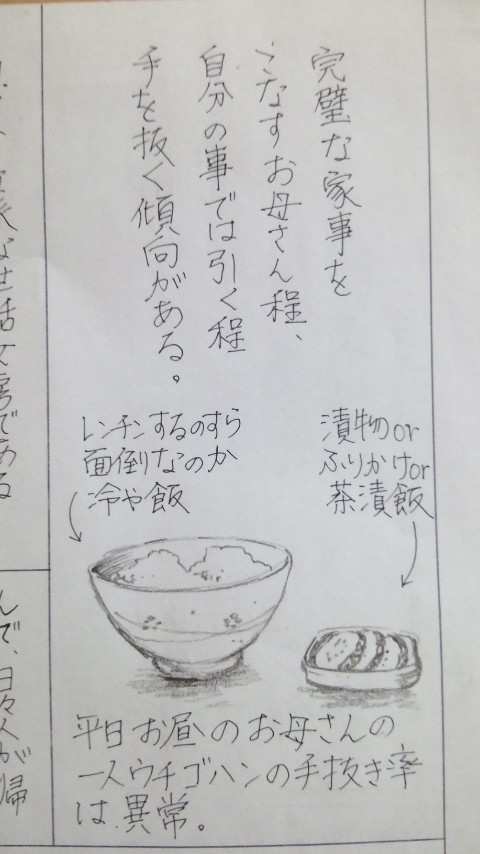 完璧な家事を
こなすお母さん程、
自分の事では引く程
手を抜く傾向がある。
漬物or
ふりかけor
茶漬飯
レンチンするのすら
面倒なのか
冷や飯
平日お昼のお母さんの
一人ウチゴハンの手抜き率
は異常。
な世話女房である
んで、日々人が帰